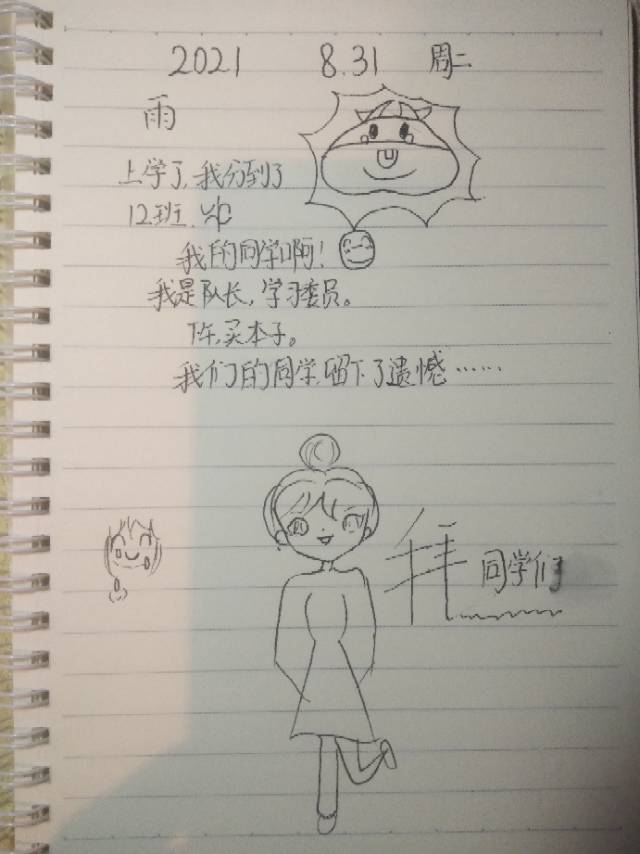 2021 8.31 周二
雨
上学了，我分到了
12班.
我的同学啊！
我是队长，学习委员。
下午，买本子。
我们的同学，留下了遗憾……
拜 同学们